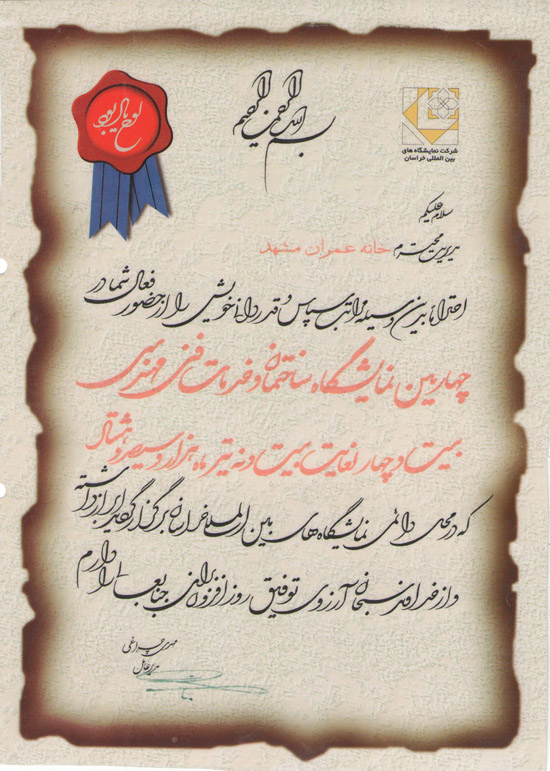 بسم الله الرحمن الرحیم
لوح یادبود
شرکت نمایشگاه های
بین المللی خراسان
سلام علیکم
مدیریت محترم خانه عمران مشهد
احتراماً بدین وسیله مراتب سپاس و قدردانی خویش را از حضور فعال شما در
چهارمین نمایشگاه ساختمان و خدمات فنی مهندسی
بیست و چهار لغایت بیست و نه تیر ماه هزار و سیصد و هشتاد
که در محل دائمی نمایشگاه های بین المللی خراسان برگزار گردید ابراز داشته
و از خداوند سبحان آرزوی توفیق روز افزون برای جنابعالی را دارم
مهدی چراغی
مدیر عامل